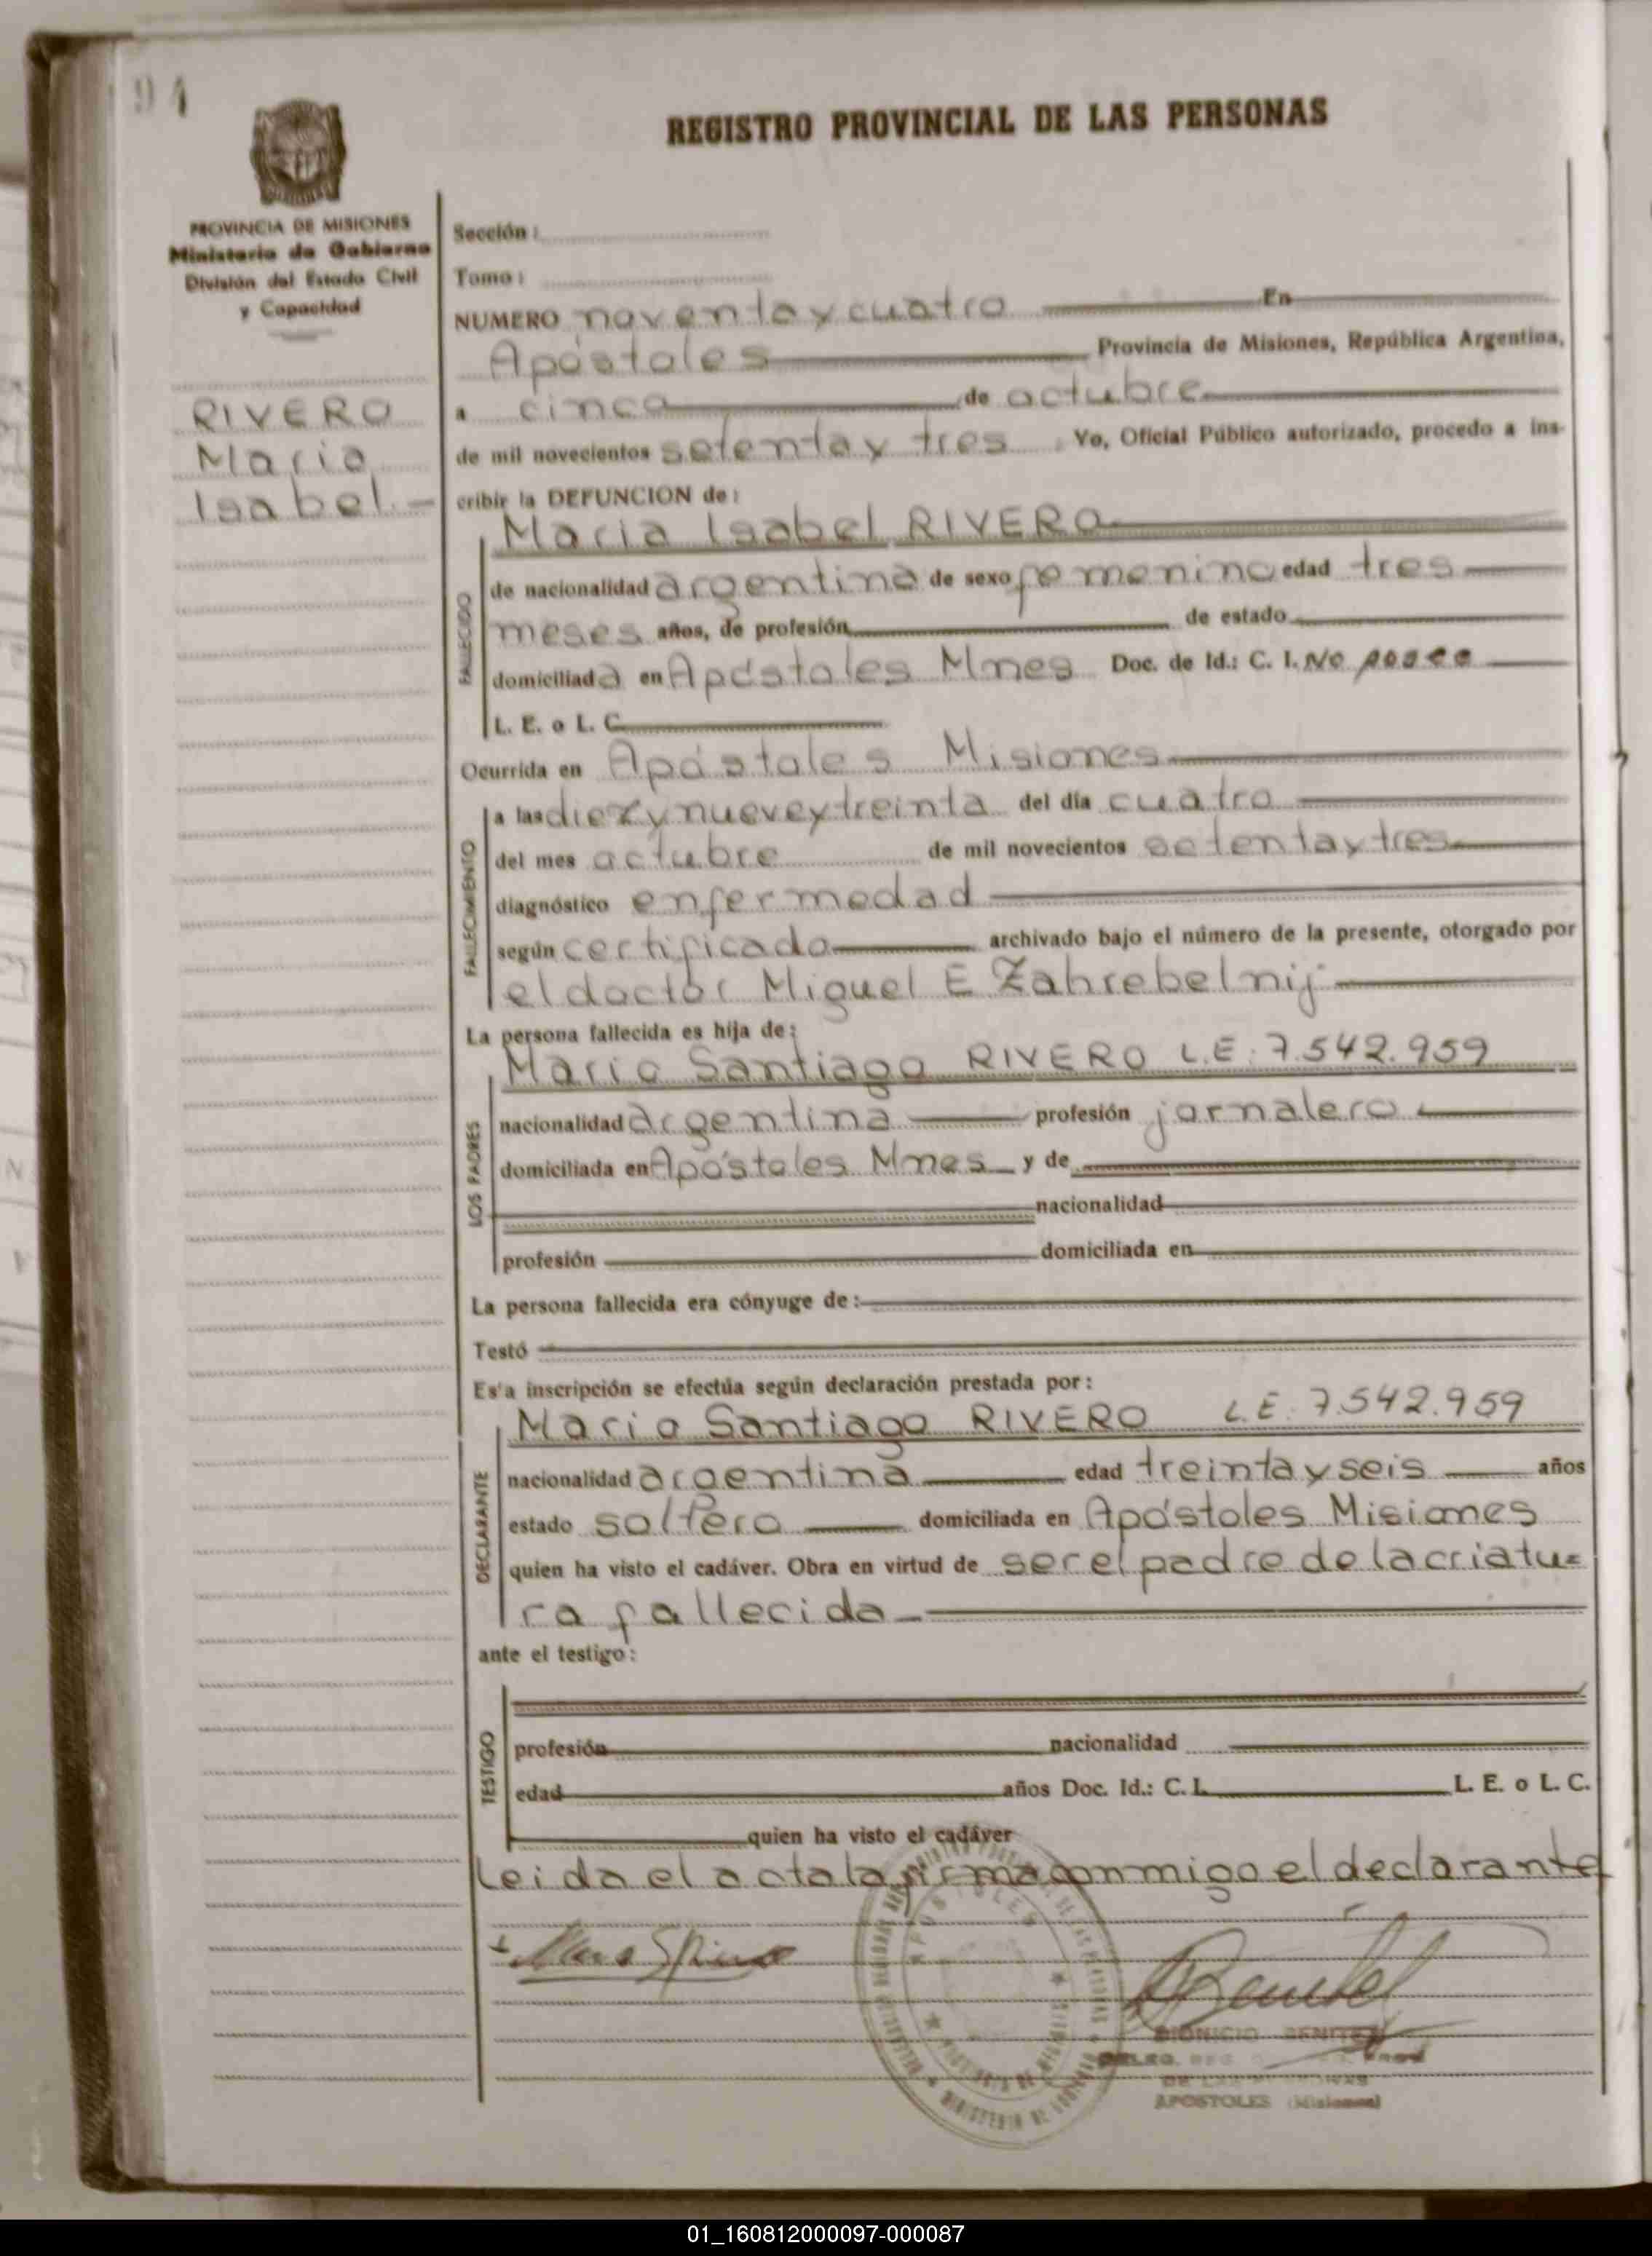 94
REGISTRO PROVINCIAL DE LAS PERSONAS
PROVINCIA DE MISIONES
Ministerio de Gobierno
División del Estado Civil
y Capacidad
RIVERO
Maria
Isabel.-
Sección:
Tomo:
NUMERO noventa y cuatro En
Apóstoles Provincia de Misiones, República Argentina,
a cinco de octubre
de mil novecientos setenta y tres. Yo, Oficial Público autorizado, procedo a ins-
cribir la DEFUNCION de:
Maria Isabel RIVERO
FALLECIDO
de nacionalidad argentina de sexo femenino edad tres
meses años, de profesión de estado
domiciliada en Apóstoles Mnes Doc. de Id.: C. I. No posee
L. E. o L. C.
Ocurrida en Apóstoles Misiones
FALLECIMIENTO
a las diez y nueve y treinta del día cuatro
del mes octubre de mil novecientos setenta y tres
diagnóstico enfermedad
según certificado archivado bajo el número de la presente, otorgado por
el doctor Miguel E Zahrebelnij
La persona fallecida es hija de:
Mario Santiago RIVERO L.E. 7.542.959
LOS PADRES
nacionalidad argentina profesión jornalero
domiciliada en Apóstoles Mnes y de
nacionalidad
profesión domiciliada en
La persona fallecida era cónyuge de:
Testó
Esta inscripción se efectúa según declaración prestada por:
Mario Santiago RIVERO L.E. 7.542.959
DECLARANTE
nacionalidad argentina edad treinta y seis años
estado soltero domiciliada en Apóstoles Misiones
quien ha visto el cadáver. Obra en virtud de ser el padre de la criatu=
ra fallecida
ante el testigo:
TESTIGO
profesión nacionalidad
edad años Doc. Id.: C. I. L. E. o L. C.
quien ha visto el cadáver
Leida el acta la firma conmigo el declarante
APOSTOLES
DIONICIO BENITEZ
APOSTOLES (Misiones)
01_160812000097-000087